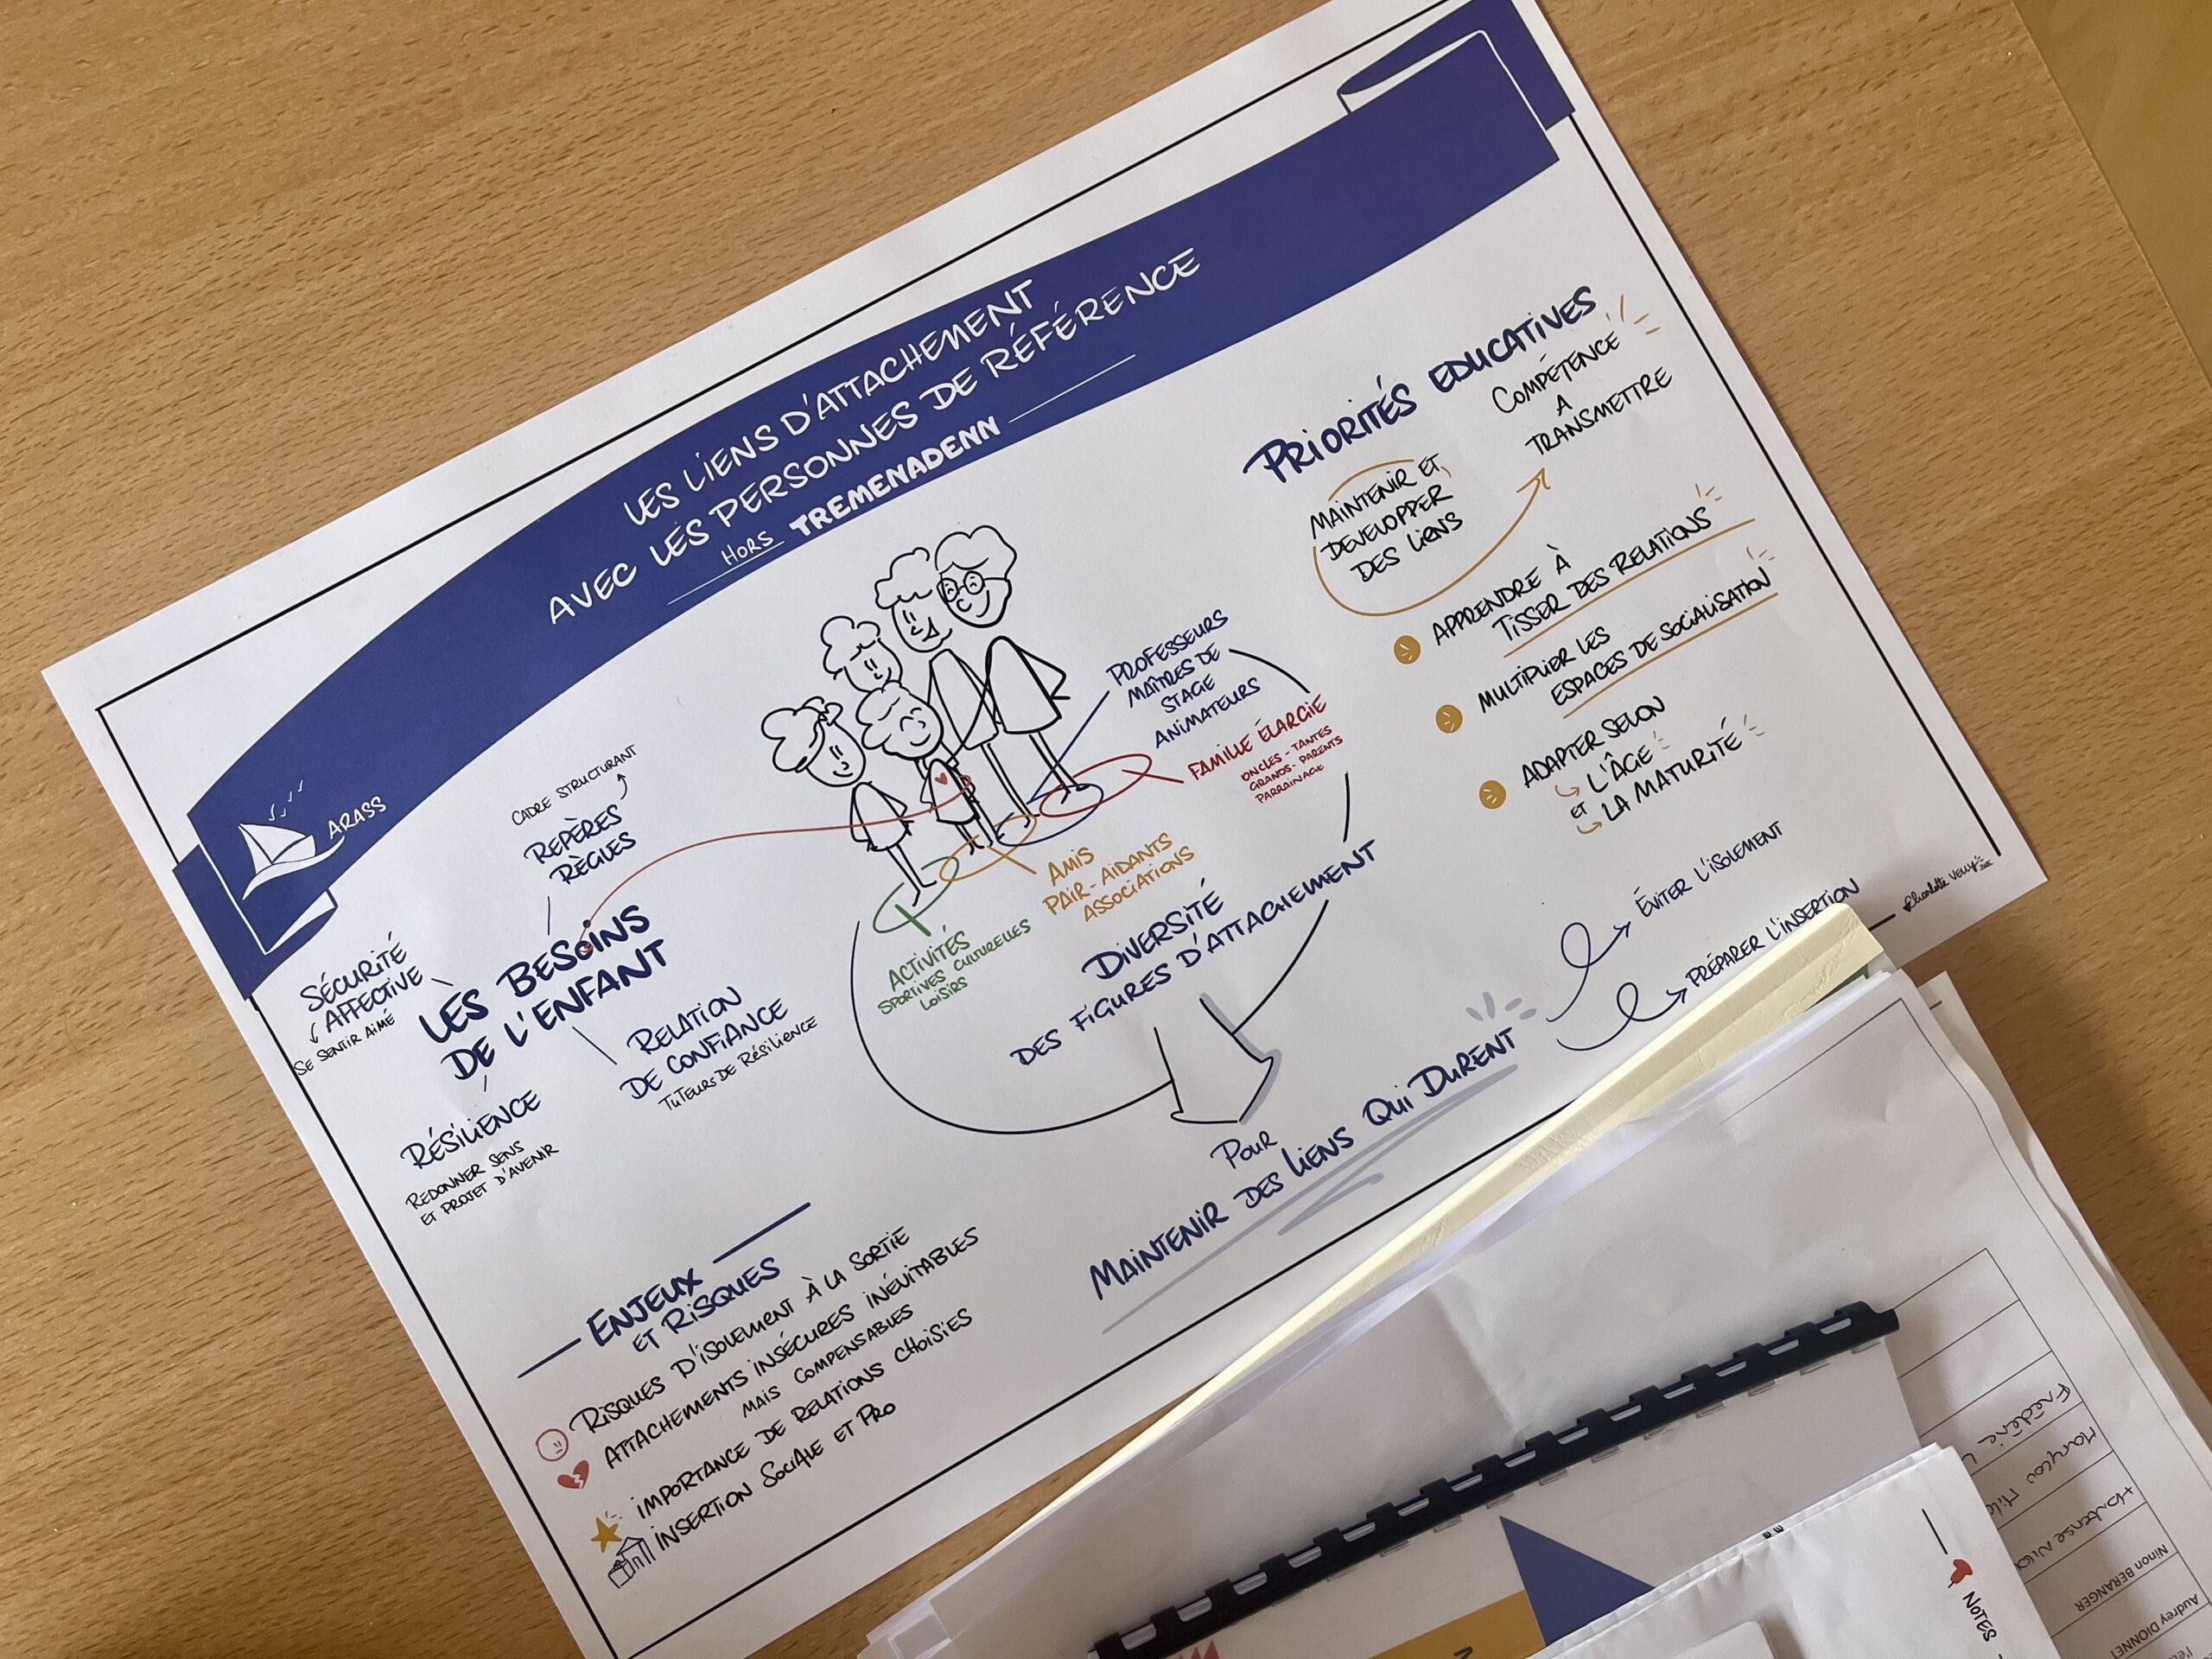 LES LIENS D'ATTACHEMENT
AVEC LES PERSONNES DE RÉFÉRENCE
HORS TREMENADENN
ARASS
CADRE STRUCTURANT
REPÈRES
RÈGLES
SÉCURITÉ
AFFECTIVE
SE SENTIR AIMÉ
LES BESOINS
DE L'ENFANT
RELATION
DE CONFIANCE
TUTEURS DE RÉSILIENCE
RÉSILIENCE
REDONNER SENS
ET PROJET D'AVENIR
ENJEUX
ET RISQUES
RISQUES D'ISOLEMENT À LA SORTIE
ATTACHEMENTS INSÉCURES INÉVITABLES
MAIS COMPENSABLES
IMPORTANCE DE RELATIONS CHOISIES
INSERTION SOCIALE ET PRO
PROFESSEURS
MAÎTRES DE
STAGE
ANIMATEURS
FAMILLE ÉLARGIE
ONCLES - TANTES
GRANDS - PARENTS
PARRAINAGE
AMIS
PAIR - AIDANTS
ASSOCIATIONS
ACTIVITÉS
SPORTIVES CULTURELLES
LOISIRS
DIVERSITÉ
DES FIGURES D'ATTACHEMENT
POUR
MAINTENIR DES LIENS QUI DURENT
ÉVITER L'ISOLEMENT
PRÉPARER L'INSERTION
PRIORITÉS EDUCATIVES
MAINTENIR ET
DEVELOPPER
DES LIENS
COMPÉTENCE
A
TRANSMETTRE
APPRENDRE À
TISSER DES RELATIONS
MULTIPLIER LES
ESPACES DE SOCIALISATION
ADAPTER SELON
L'ÂGE
ET
LA MATURITÉ
Charlotte
NOTES
Frédéric
Hortense
Ninon BERANGER
Audrey DIONNET